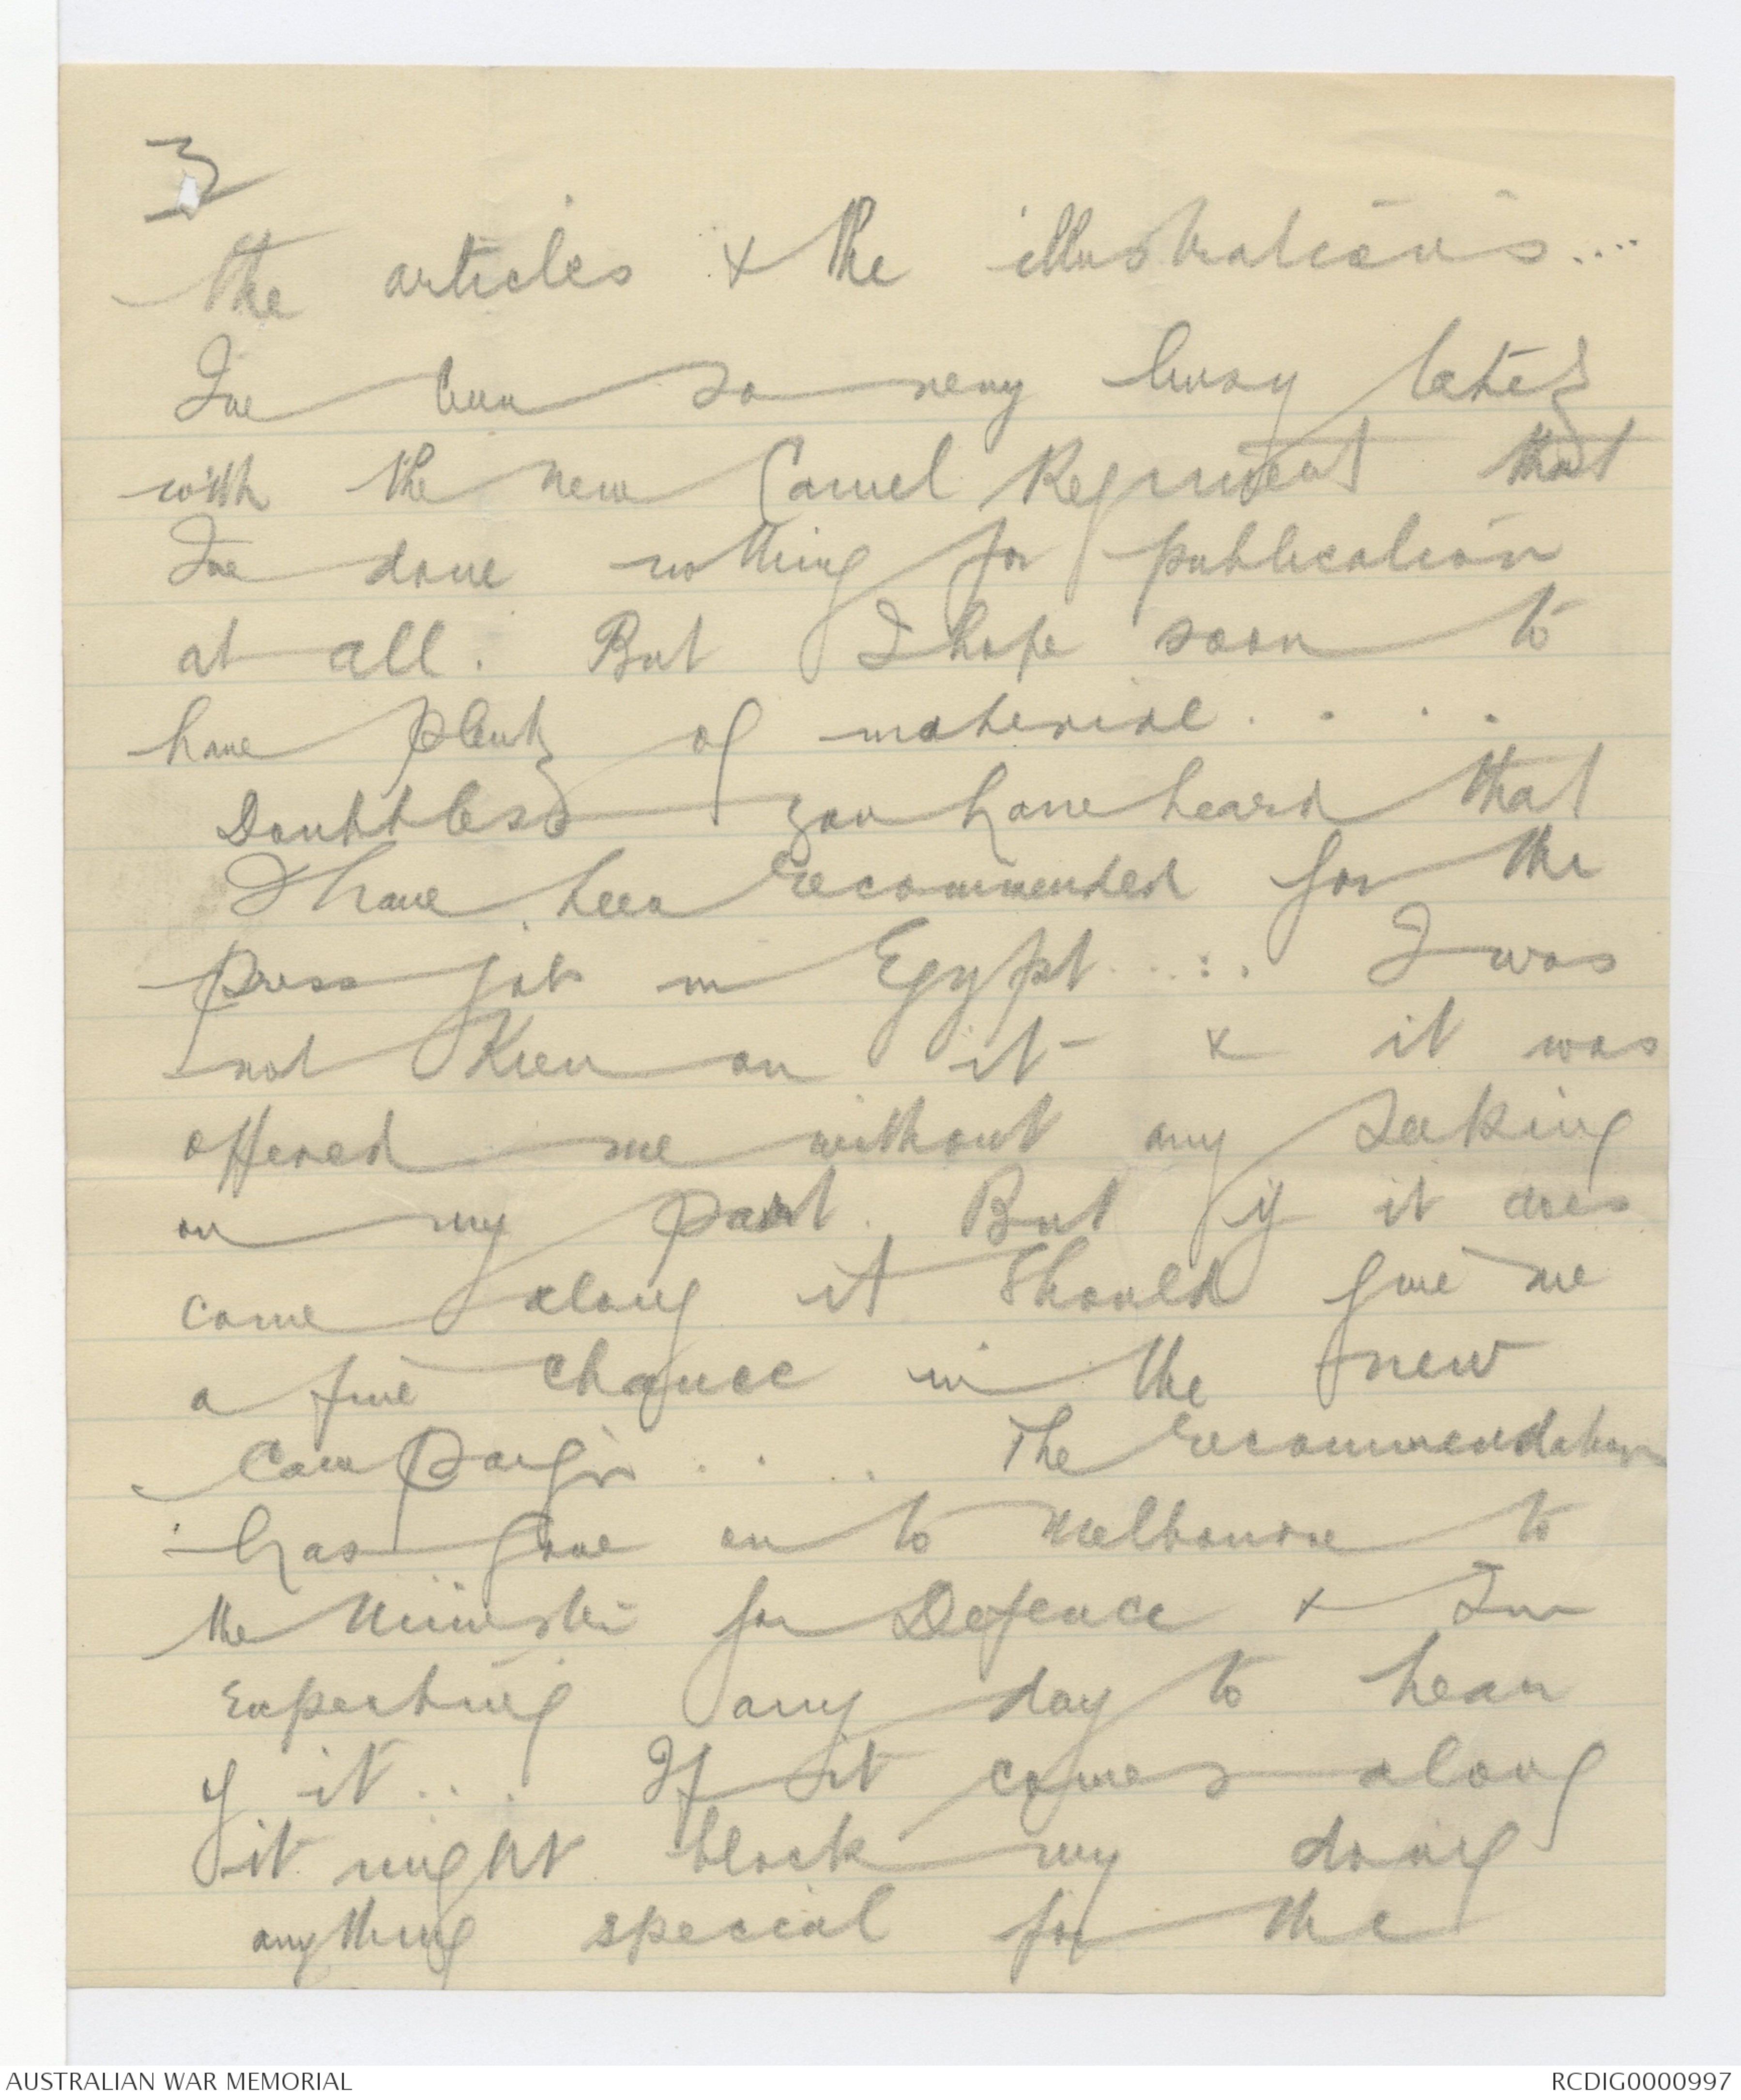 3
the articles & the illustrations ...
I've been so very busy lately
with the new Camel Regiment that
I've done nothing for publication
at all. But I hope soon to
have plenty of material . . . .
Doubtless you have heard that
I have been recommended for the
press job in Egypt .... I was
not keen on it - & it was
offered me without any seeking
on my part. But if it does
come along it should give me
a fine chance in the new
campaign . . . . The recommendation
has gone on to Melbourne to
the Minister for Defence & I'm
expecting any day to hear
of it . . . If it comes along
it might block my doing
anything special for the
AUSTRALIAN WAR MEMORIAL
RCDIG0000997